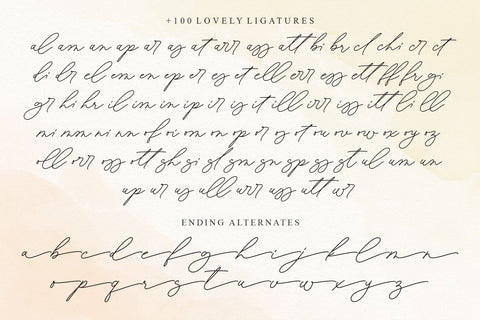 +100 LOVELY LIGATURES
al am an ap ar as at arr ass att bi br cl chi cr ct
di dr el em en ep er es et ell err ess ett ff fr gi
gr hi hr il im in ip ir is it ill irr iss itt li ll
mi nn ni nn of oi om on op or os ot ou ov ow ox oy oz
oll orr oss ott sh si sl sm sn sp ss st ul um un
up ur us ull urr uss utt wr
ENDING ALTERNATES
a b c d e f g h i j k l m n
o p q r s t u v w x y z